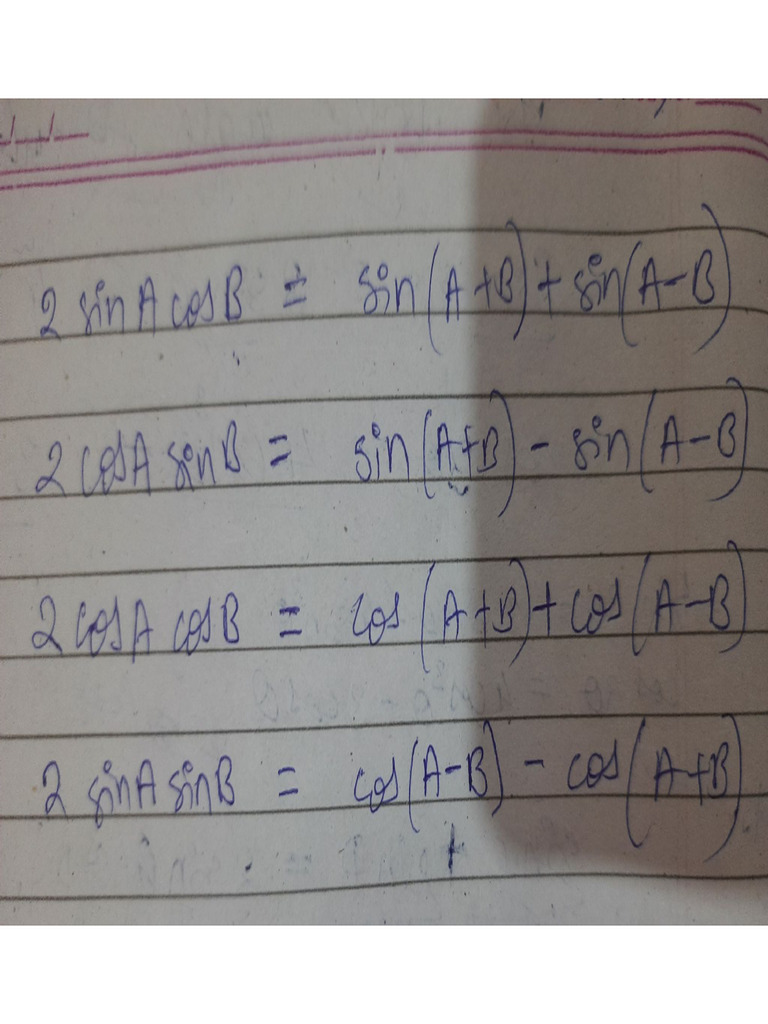 2 sinA cosB = sin(A+B) + sin(A-B)
2 cosA sinB = sin(A+B) - sin(A-B)
2 cosA cosB = cos(A+B) + cos(A-B)
2 sinA sinB = cos(A-B) - cos(A+B)